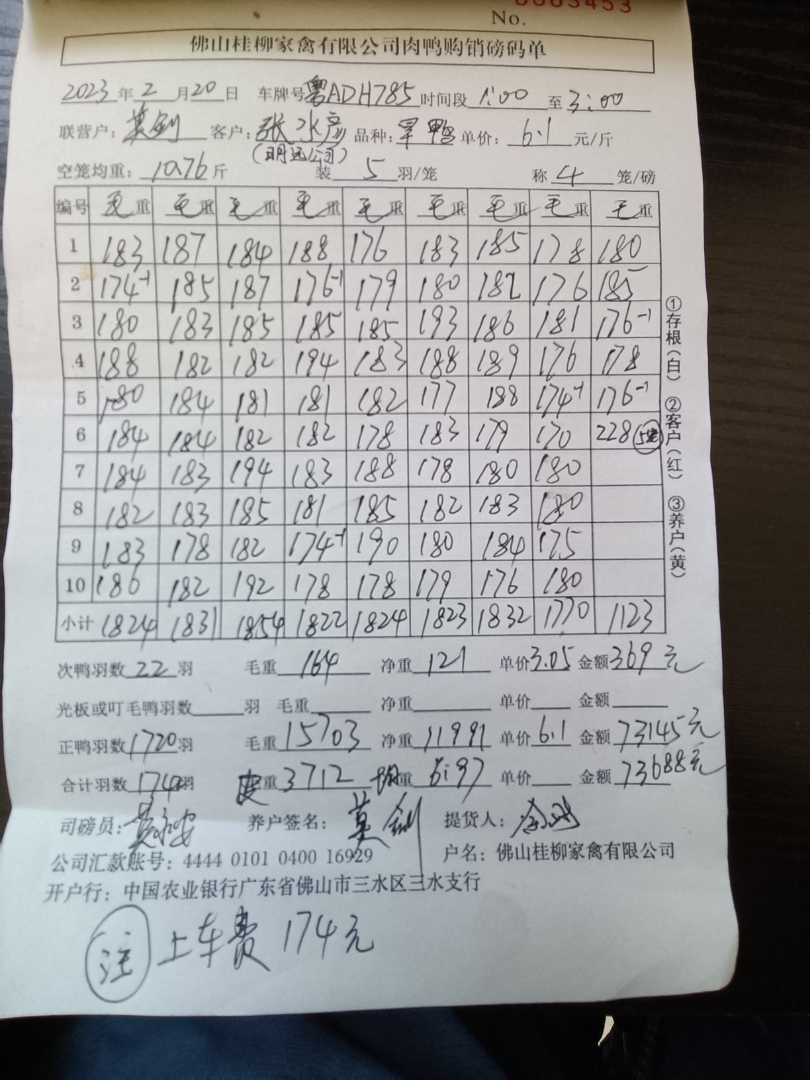 No. 0003453
佛山桂柳家禽有限公司肉鸭购销磅码单
2023年2月20日 车牌号粤ADH785时间段1:00至3:00
联营户:莫剑 客户:张水彦 品种:旱鸭 单价:6.1元/斤
(明远公司)
空笼均重:10.76斤 装5羽/笼 称4笼/磅
编号 毛重 毛重 毛重 毛重 毛重 毛重 毛重 毛重 毛重
1 183 187 184 188 176 183 185 178 180
2 174-1 185 187 176-1 179 180 182 176 185
3 180 183 185 185 185 193 186 181 176-1
4 188 182 182 194 183 188 189 176 178
5 180 184 181 181 182 177 188 174-1 176-1
6 184 184 182 182 178 183 179 170 228
7 184 183 194 183 188 178 180 180
8 182 183 185 181 185 182 183 180
9 183 178 182 174-1 190 180 184 175
10 186 182 192 178 178 179 176 180
小计 1824 1831 1854 1822 1824 1823 1832 1770 1123
次鸭羽数22羽 毛重164 净重121 单价3.05 金额369元
光板或叮毛鸭羽数 羽 毛重 净重 单价 金额
正鸭羽数1720羽 毛重15703 净重11991 单价6.1 金额73145元
合计羽数1742羽 皮重3712 均重6.97 单价 金额73688元
司磅员: 养户签名:莫剑 提货人:
公司汇款账号:4444 0101 0400 16929 户名:佛山桂柳家禽有限公司
开户行:中国农业银行广东省佛山市三水区三水支行
注 上车费174元
①存根(白) ②客户(红) ③养户(黄)